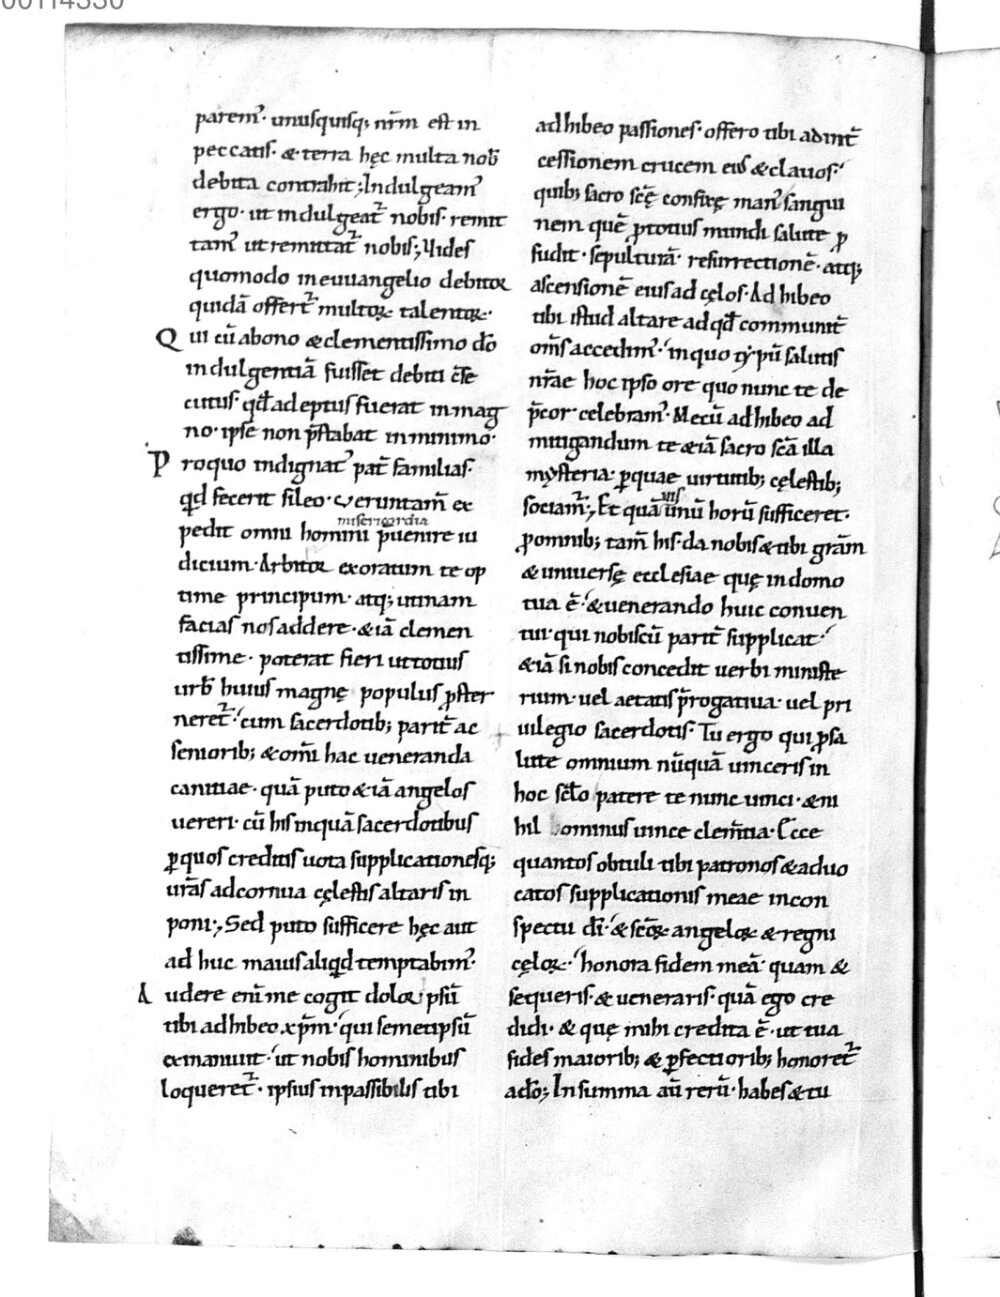 00114330
parem᷒· unusquisq; nr̄m est in
peccatis· & terra hęc multa nob̄
debita contrahit; Indulgeam᷒
ergo· ut indulgeat᷒ nobis· remit
tam᷒ ut remittat᷒ nobis; Vides
quomodo in euuangelio debitoꝝ
quidā offert᷒ multoꝝ talentoꝝ·
Qui cū abono & clementissimo dn̄o
indulgentiā fuisset debiti c̄se
cutus· qd̄ adeptus fuerat in mag
no· ipse non p̄stabat in minimo·
Pro quo indignat᷒ pat̄ familias·
qd̄ fecerit sileo· veruntam̄ ex
pedit omni homini p̄uenire iu
misericordia
dicium· Arbitroꝝ exoratum te op
time principum· atq; utinam
facias nos addere· & iā clemen
tissime· poterat fieri ut totius
urb̄ huius magnę populus ꝓster
neret᷒· cum sacerdotib; parit̄ ac
seniorib; & om̄i hac ueneranda
canitiae· quā puto & iā angelos
uereri· cū his inquā sacerdotibus
ꝑ quos creditis uota supplicationesq;
ur̄as ad cornua cęlestis altaris in
poni; Sed puto sufficere hęc aut
ad huc maius aliqd̄ temptabim᷒·
Audere enī me cogit doloꝝ ipsū
tibi adhibeo xp̄m· qui semetipsū
exinaniuit· ut nobis hominibus
loqueret᷒· ipsius inpassibilis tibi
adhibeo passiones· offero tibi ad int̄
cessionem crucem eius & clauos·
quib; sacro sc̄ę confixę man᷒ sangui
nem quē ꝓ totius mundi salute ꝓ
fudit· sepulturā· resurrectionē· atq;
ascensionē eius ad cęlos· Adhibeo
tibi istud altare ad qd̄ communit̄
om̄s accedim᷒· in quo tȳpū salutis
nr̄ae hoc ipso ore quo nunc te de
p̄cor· celebram᷒· Mecū adhibeo ad
mitigandum te & iā sacro sc̄ā illa
mẏsteria· ꝑ quae uirtutib; cęlestib;
sociam᷒; Et quāuis unū horū sufficeret·
ꝓ omnib; tam̄ his· da nobis & tibi grām
& uniuersę ecclesiae quę in domo
tua ē· & uenerando huic conuen
tui· qui nobiscū parit̄ supplicat·
& iā si nobis concedit uerbi ministe
rium· uel aetatis p̄rogatiua· uel pri
uilegio sacerdotis· Tu ergo qui ꝓ sa
lute omnium nūquā uinceris in
hoc sc̄lo patere te nunc uinci· & ni
hil ominus uince clem̄tia· Ecce
quantos obtuli tibi patronos & aduo
catos supplicationis meae in con
spectu dī· & sc̄oꝝ angeloꝝ & regni
cęloꝝ· honora fidem meā· quam &
sequeris· & ueneraris· quā ego cre
didi· & quę mihi credita ē· ut tua
fides maiorib; & ꝑfectiorib; honoret᷒
a dn̄o; In summa aū rerū· habes & tu